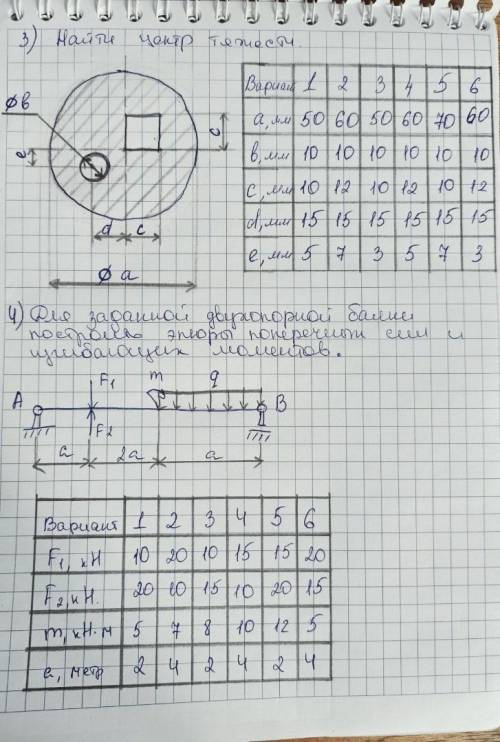 3) Найти центр тяжести.
Øв
e
c
d c
Ø a
Вариант 1 2 3 4 5 6
a, мм 50 60 50 60 70 60
в, мм 10 10 10 10 10 10
c, мм 10 12 10 12 10 12
d, мм 15 15 15 15 15 15
e, мм 5 7 3 5 7 3
4) Для заданной двухопорной балки
построить эпюры поперечных сил и
изгибающих моментов.
F1 m q
A B
F2
a 2a a
Вариант 1 2 3 4 5 6
F1, кН 10 20 10 15 15 20
F2, кН. 20 10 15 10 20 15
m, кН·м 5 7 8 10 12 5
a, метр 2 4 2 4 2 4